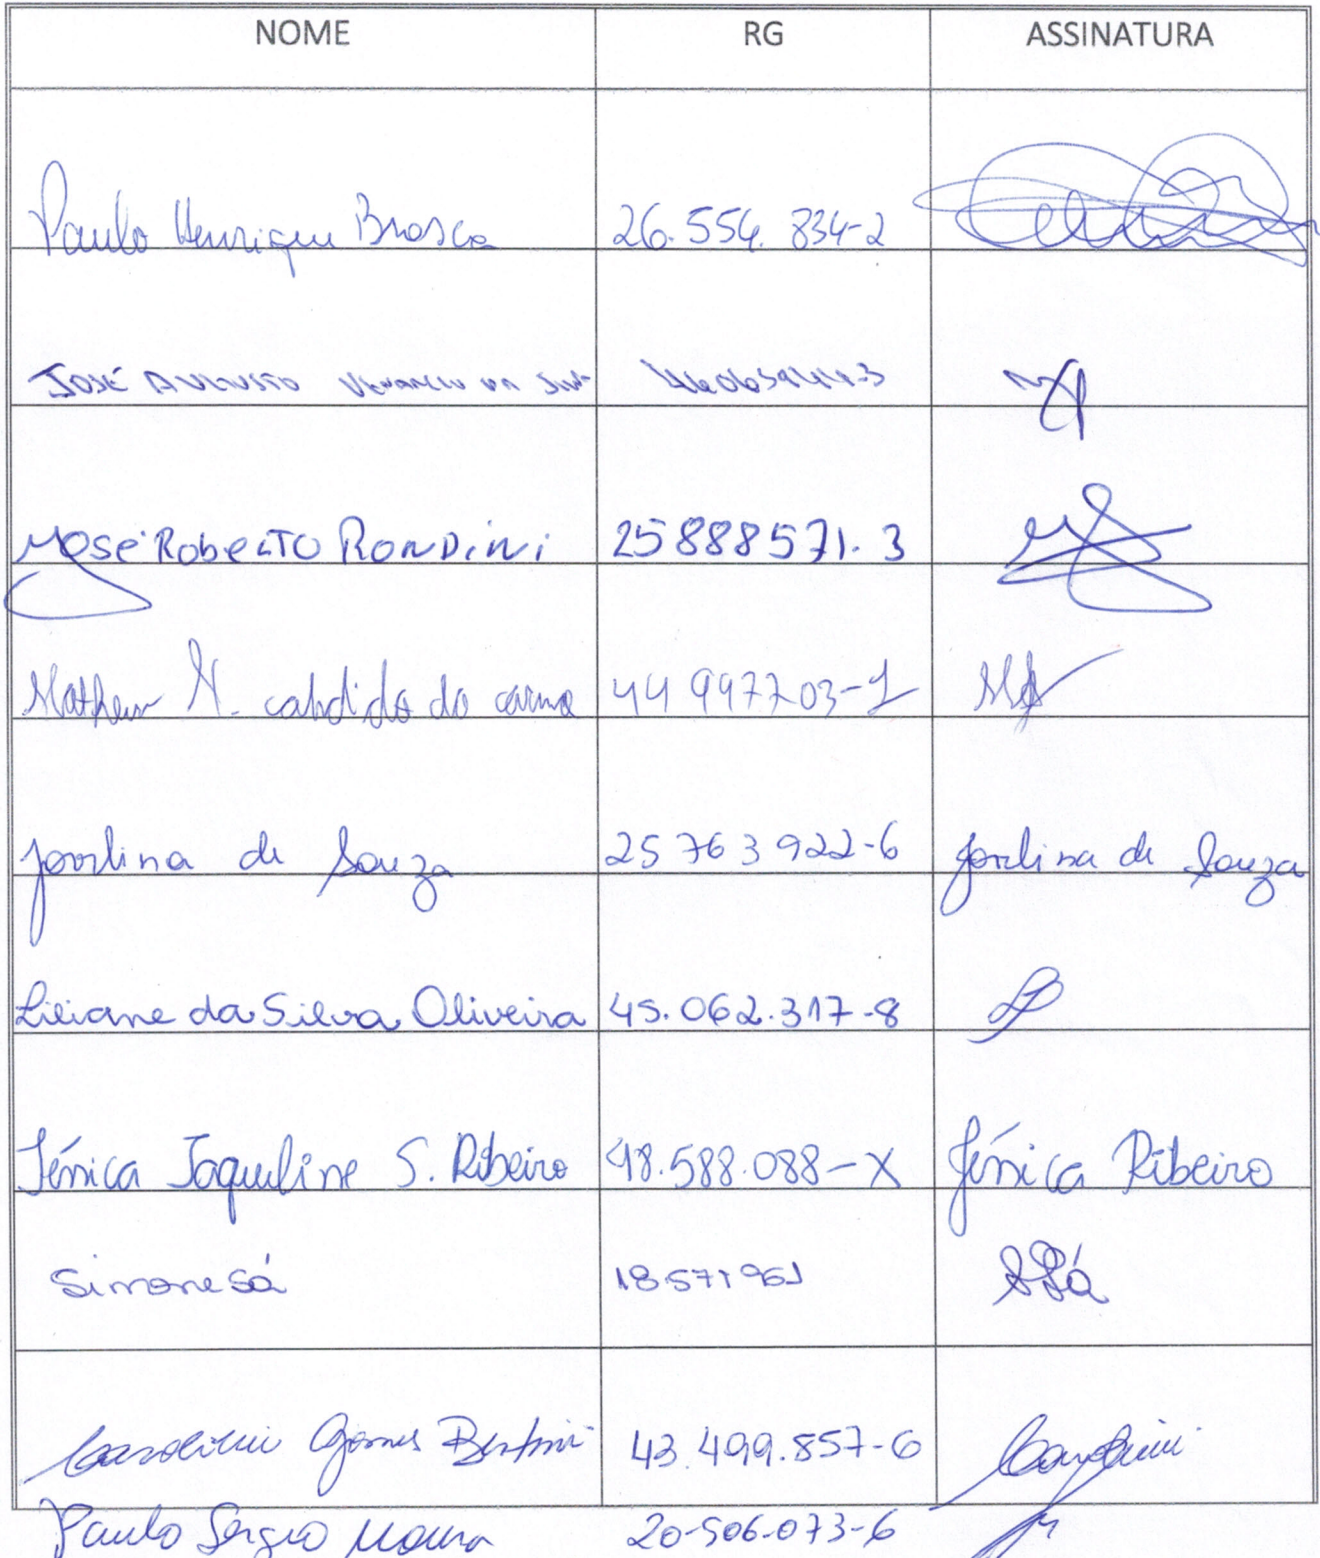 NOME RG ASSINATURA
Paulo Henrique Brosco 26.554.834-2
JOSÉ AUGUSTO
José Roberto Rondini 25888571.3
Matheus N. candido do carmo 44 997703-1
Jovelina de Souza 25 763 922-6 Jovelina de Souza
Liliane da Silva Oliveira 45.062.317-8
Jénica Jaqueline S. Ribeiro 48.588.088-X Jénica Ribeiro
Simone Sá 18571961 SSá
Caroline Gomes Bertini 43.499.857-6 Caroline
Paulo Sergio Moura 20-506-073-6